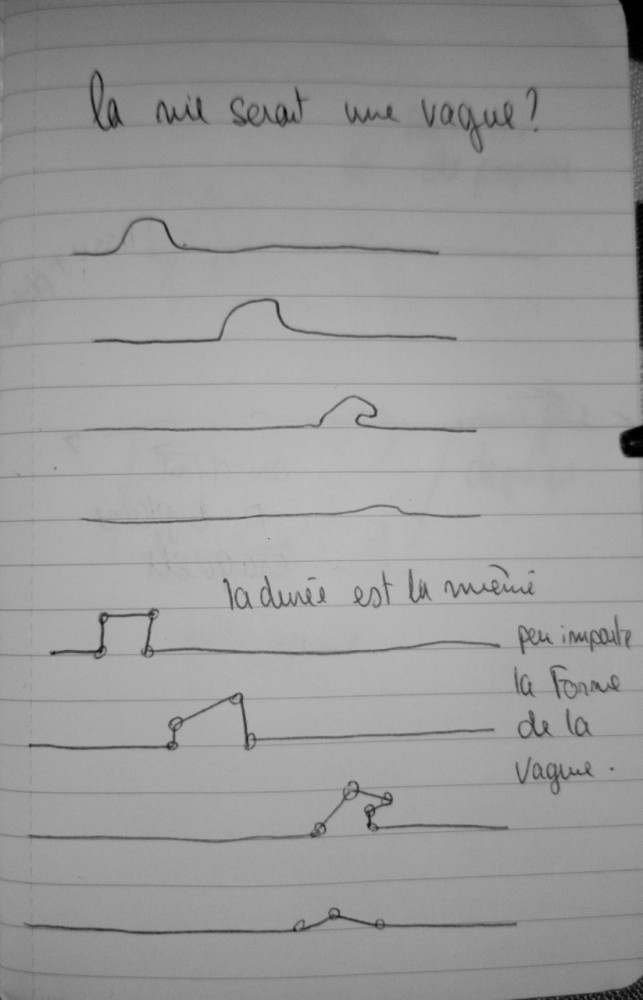 la vie serait une vague?
la durée est la même
peu importe
la Forme
de la
vague.